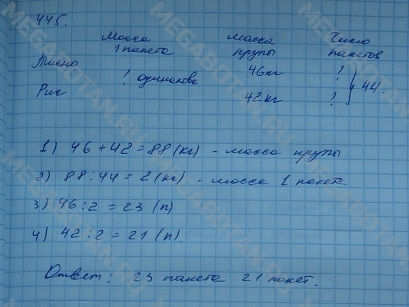 445.
Масса Масса Число
1 пакета крупы пакетов
Пшено ? одинакова 46кг ? } 44
Рис 42кг ?
1) 46 + 42 = 88 (кг) - масса крупы
2) 88 : 44 = 2 (кг) - масса 1 пакета
3) 46 : 2 = 23 (п)
4) 42 : 2 = 21 (п)
Ответ: 23 пакета 21 пакет.